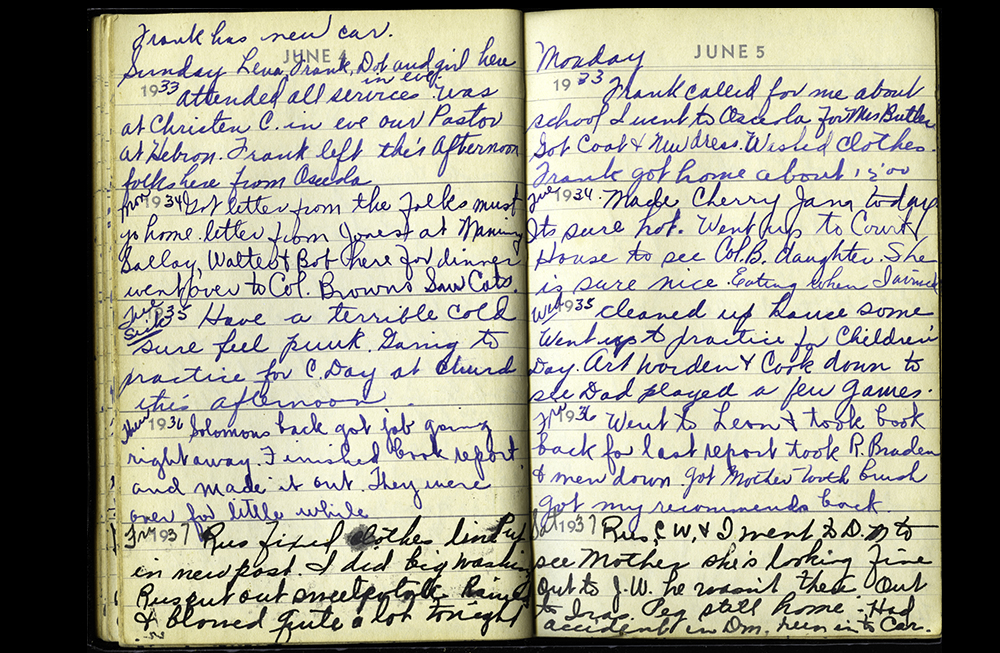 Frank has new car.
JUNE 4
Sunday Lena, Frank, Dot and girl here
in eve.
1933 attended all services. Was
at Christen C. in eve our Pastor
at Hebron. Frank left this afternoon
folks here from Osceola
Mon 1934 Got letter from the folks must
go home. letter from Jones at
Walter & Bob here for dinner
went over to Col. Browns Saw Cats.
Tue 1935 Have a terrible cold
Sick
sure feel punk. Going to
practice for C. Day at church
this afternoon.
Thur 1936 Solomons back got job going
right away. Finished book report
and made it out. They were
over for little while
Fri 1937 Rus fixed clothes line Put
in new post. I did big washing
Rus put out sweet potatoe Rained
& blowed quite a lot tonight
JUNE 5
Monday
1933 Frank called for me about
school I went to Osceola for Mrs Butler
Got Coat & New dress. Washed clothes.
Frank got home about 12:00
Tue 1934. Made Cherry Jam today
Its sure hot. Went up to Court
House to see Col. B. daughter. She
is sure nice. Eating when I arrived
Wed 1935 cleaned up house some
Went up to practice for Children
Day. Art Worden & Cook down to
see Dad played a few games.
Fri 1936 Went to Leon & took book
back for last report took R. Braden
& men down. Got Mother tooth brush
got my recommends back.
Sat 1937 Rus, C W, & I went to D. M to
see Mother she's looking fine
Out to J.W. he wasn't there Out
to Peg still home - Had
accident in Dm, run into Car.